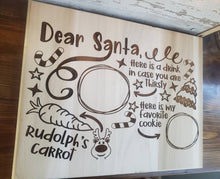 Dear Santa,
Here is a drink
in case you are
Thirsty
Here is my
favorite
cookie
Rudolph's
carrot